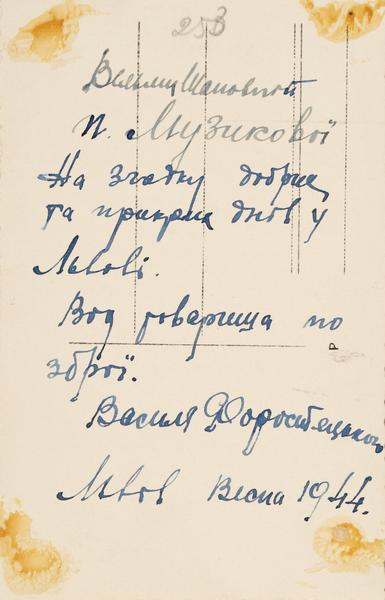 253
Вельми Шановній
п. Музикової
На згадку добрих
та прикрих днів у
Львові.
Вод товариша по
зброї.
Василя Хоростецького
Львов Весна 1944.